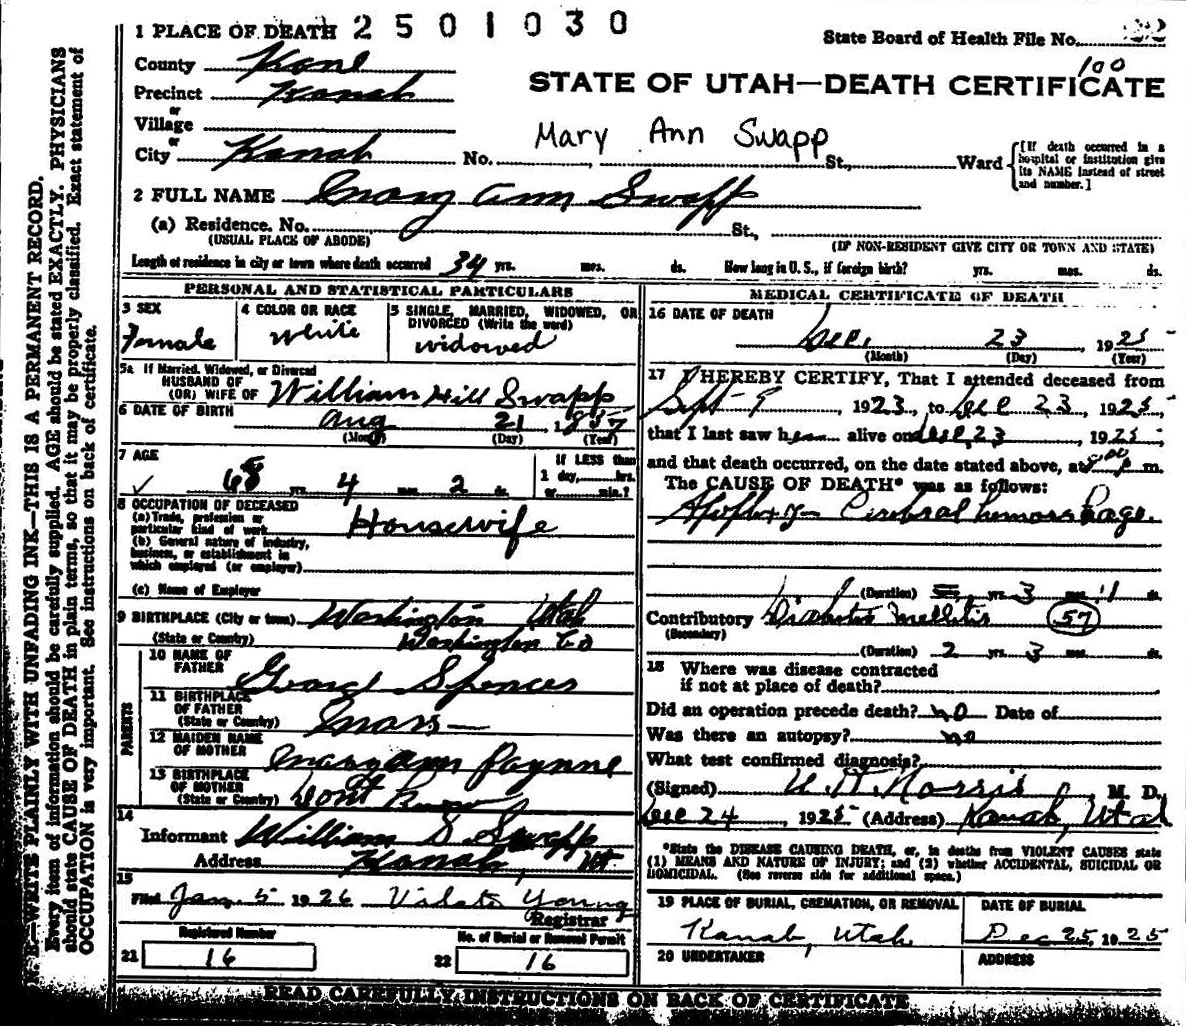 1 PLACE OF DEATH 2 5 0 1 0 3 0
State Board of Health File No.
100
County Kane
STATE OF UTAH—DEATH CERTIFICATE
Precinct Kanab
or
Village
or
City Kanab No. St., Ward
Mary Ann Swapp
[If death occurred in a hospital or institution give its NAME instead of street and number.]
2 FULL NAME Mary Ann Swapp
(a) Residence. No. St.,
(USUAL PLACE OF ABODE) (IF NON-RESIDENT GIVE CITY OR TOWN AND STATE)
Length of residence in city or town where death occurred 34 yrs. mos. ds. How long in U. S., if foreign birth? yrs. mos. ds.
PERSONAL AND STATISTICAL PARTICULARS
3 SEX 4 COLOR OR RACE 5 SINGLE, MARRIED, WIDOWED, OR DIVORCED (Write the word)
Female White widowed
5a If Married, Widowed, or Divorced
HUSBAND OF
(OR) WIFE OF William Hill Swapp
6 DATE OF BIRTH Aug 21 1857
(Month) (Day) (Year)
7 AGE If LESS than
68 yrs. 4 mos. 2 ds. 1 day, hrs.
or min.?
8 OCCUPATION OF DECEASED
(a) Trade, profession or particular kind of work Housewife
(b) General nature of industry, business, or establishment in which employed (or employer)
(c) Name of Employer
9 BIRTHPLACE (City or town) Washington Utah
(State or Country) Washington Co
PARENTS
10 NAME OF FATHER George Spencer
11 BIRTHPLACE OF FATHER
(State or Country) Mass
12 MAIDEN NAME OF MOTHER Mary Ann Paynne
13 BIRTHPLACE OF MOTHER
(State or Country) Dont know
14
Informant William S Swapp
Address Kanab, Ut
15
Filed Jan 5 1926 Violate Young
Registrar
Registered Number No. of Burial or Removal Permit
21 16 22 16
MEDICAL CERTIFICATE OF DEATH
16 DATE OF DEATH
Dec. 23 1925
(Month) (Day) (Year)
17 I HEREBY CERTIFY, That I attended deceased from
Sept 9, 1923, to Dec 23, 1925,
that I last saw her alive on Dec, 23, 1925;
and that death occurred, on the date stated above, at 8:00 p m.
The CAUSE OF DEATH* was as follows:
Apoplexy - Cerebral hemorrhage.
(Duration) yrs. 3 mos. 11 ds.
Contributory Diabetes Mellitis 57
(Secondary)
(Duration) 2 yrs. 3 mos. ds.
18 Where was disease contracted
if not at place of death?
Did an operation precede death? no Date of
Was there an autopsy? no
What test confirmed diagnosis?
(Signed) Norris, M. D.
Dec 24, 1925 (Address) Kanab, Utah
*State the DISEASE CAUSING DEATH, or, in deaths from VIOLENT CAUSES state
(1) MEANS AND NATURE OF INJURY; and (2) whether ACCIDENTAL, SUICIDAL OR
HOMICIDAL. (See reverse side for additional space.)
19 PLACE OF BURIAL, CREMATION, OR REMOVAL DATE OF BURIAL
Kanab, Utah Dec 25, 1925
20 UNDERTAKER ADDRESS
READ CAREFULLY INSTRUCTIONS ON BACK OF CERTIFICATE
N. B.—WRITE PLAINLY WITH UNFADING INK—THIS IS A PERMANENT RECORD.
Every item of information should be carefully supplied. AGE should be stated EXACTLY. PHYSICIANS
should state CAUSE OF DEATH in plain terms, so that it may be properly classified. Exact statement of
OCCUPATION is very important. See instructions on back of certificate.